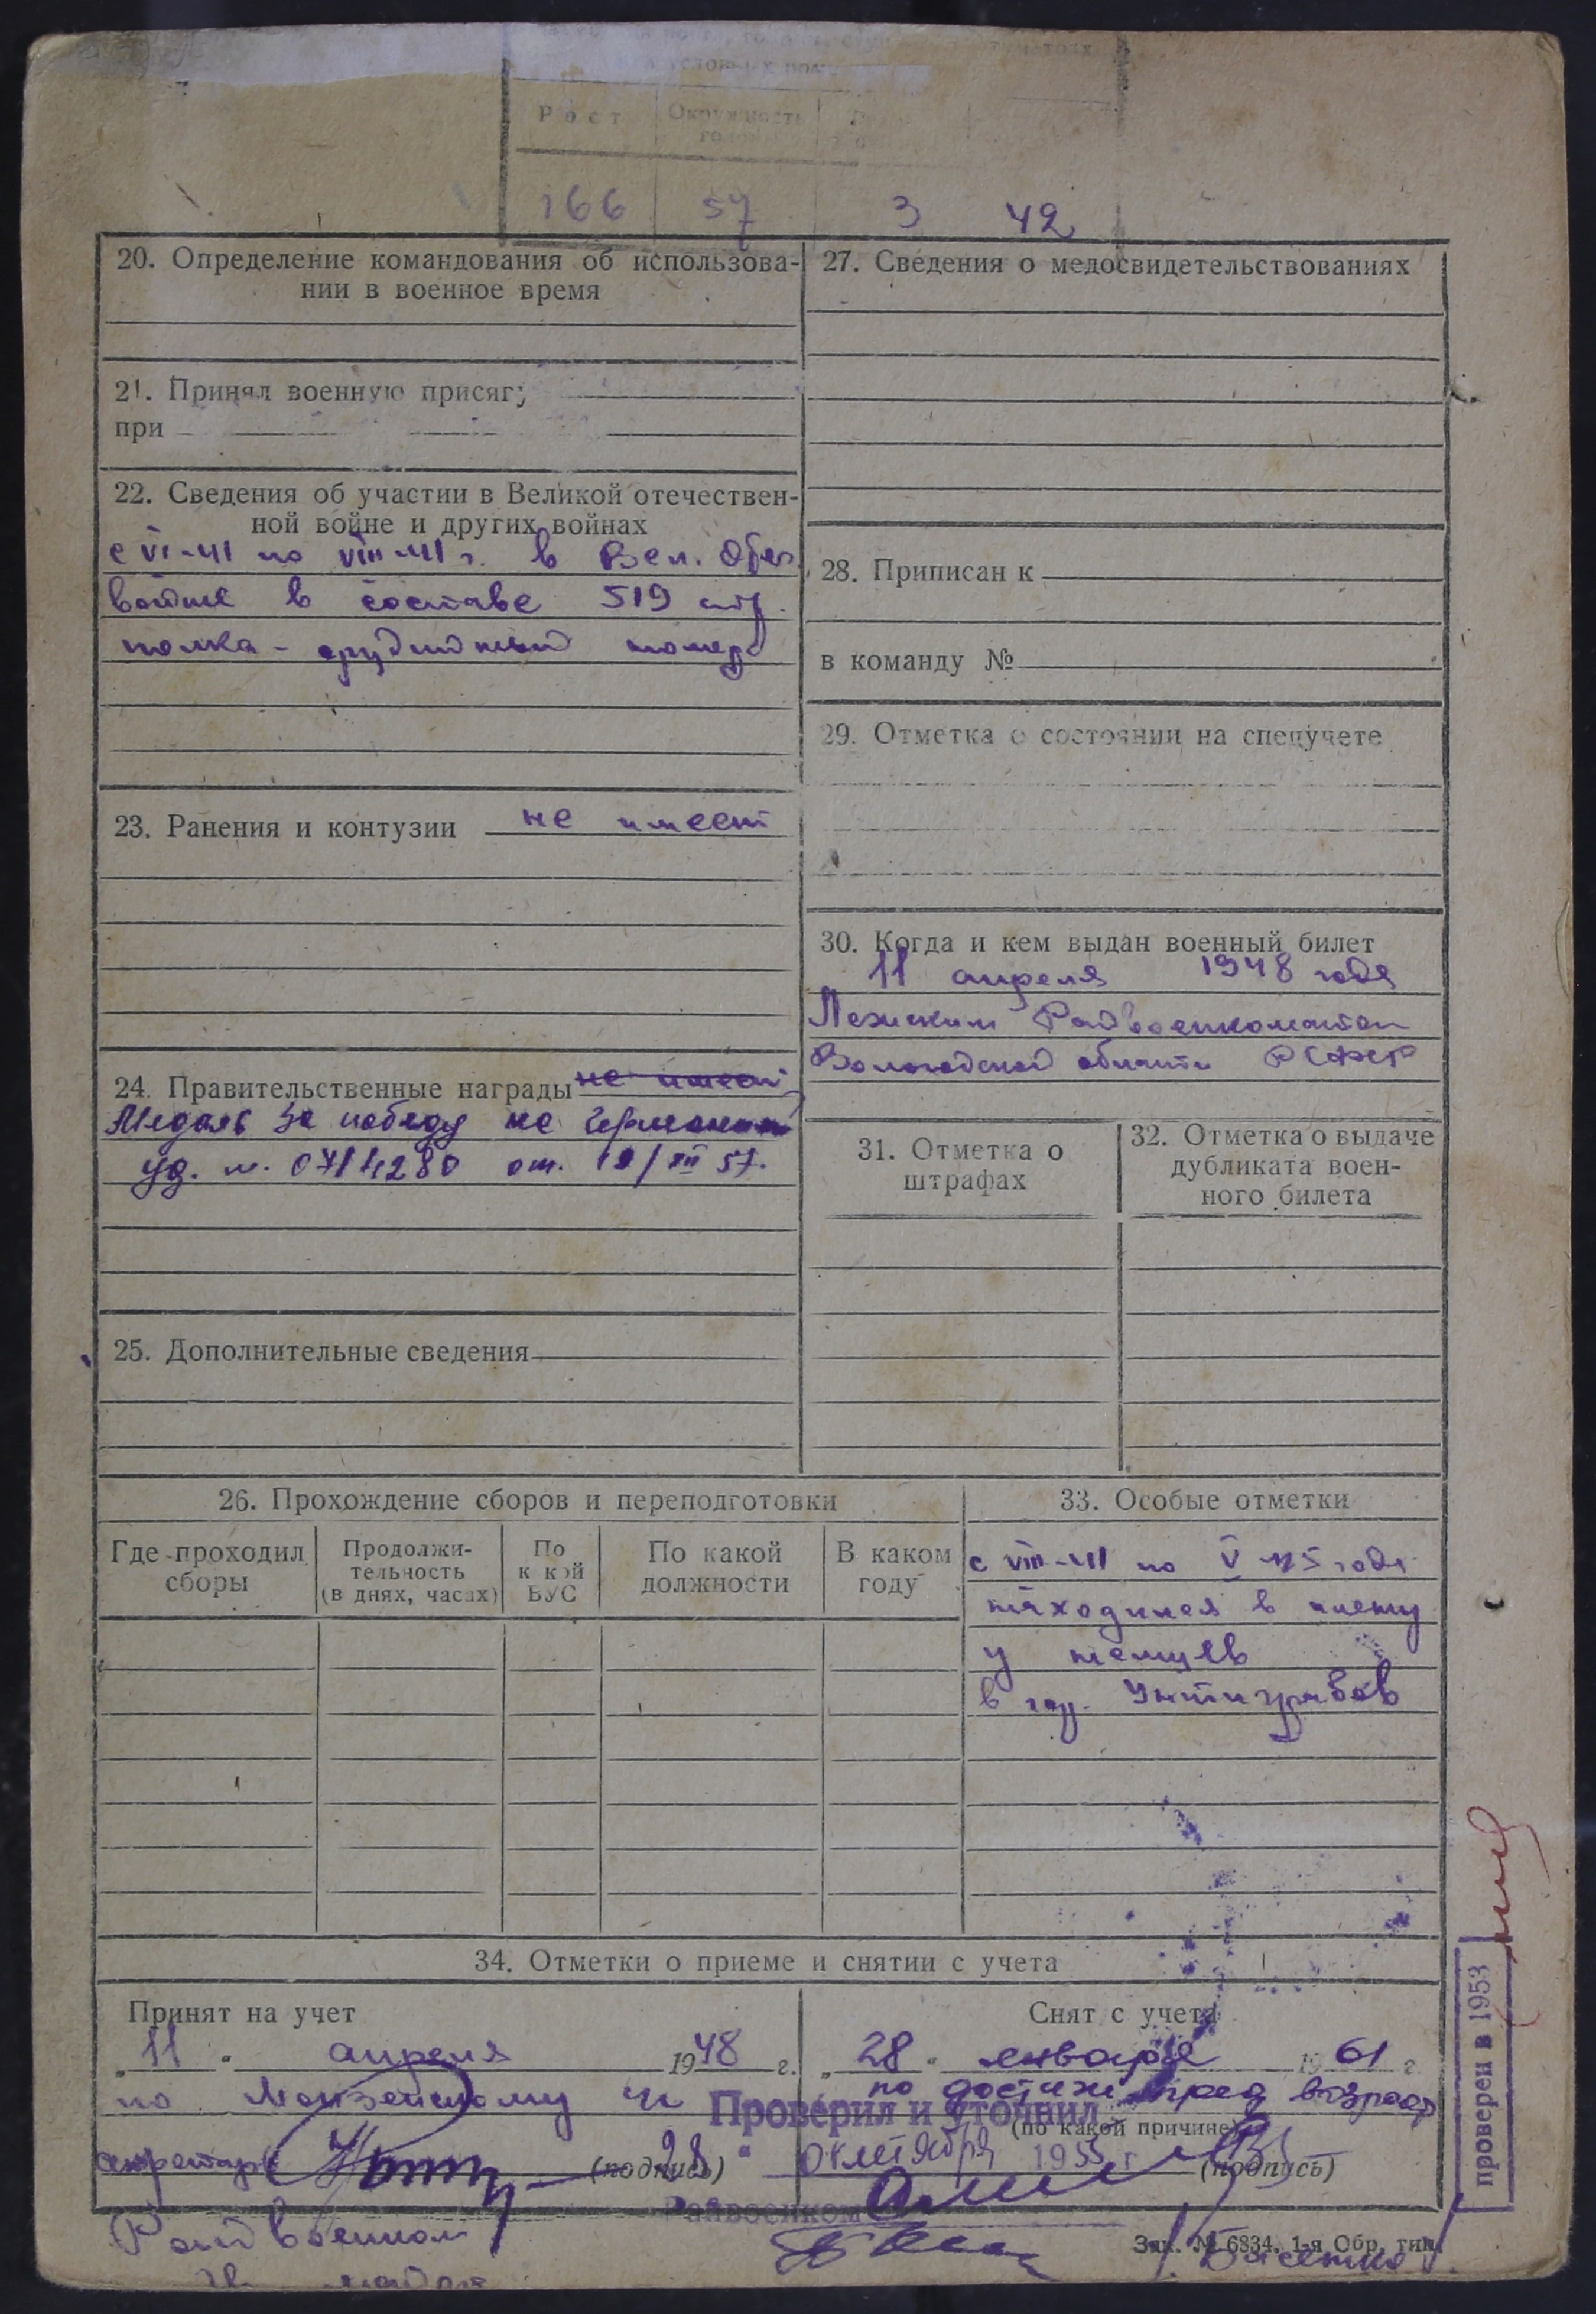 Рост
Окружность
166 57 3 42
20. Определение командования об использова-
нии в военное время
21. Принял военную присягу
при
22. Сведения об участии в Великой отечествен-
ной войне и других войнах
с VI-41 по VIII-41 г. в Вел. Отеч.
войне в составе 519 стр.
полка - орудийный номер
23. Ранения и контузии не имеет
24. Правительственные награды не имеет
Медаль За победу на Германией
уд. № 0714280 от. 12/XII 57.
25. Дополнительные сведения
27. Сведения о медосвидетельствованиях
28. Приписан к
в команду №
29. Отметка о состоянии на спецучете
30. Когда и кем выдан военный билет
11 апреля 1948 года
Лежским Райвоенкоматом
Вологодской области РСФСР
31. Отметка о
штрафах
32. Отметка о выдаче
дубликата воен-
ного билета
26. Прохождение сборов и переподготовки
Где проходил
сборы
Продолжи-
тельность
(в днях, часах)
По
к кой
ВУС
По какой
должности
В каком
году
33. Особые отметки
с VIII-41 по V-45 года
находился в плену
у немцев
в гор.
34. Отметки о приеме и снятии с учета
Принят на учет
„11“ апреля 1948 г.
по
(подпись)
Райвоенком
Снят с учета
„28“ января 1961 г.
по достиж. пред возраст
(по какой причине)
(подпись)
Проверил и уточнил
28 " октября 1953 г
Райвоенком
Зак. № 6834. 1-я Обр. тип.
проверен в 1953